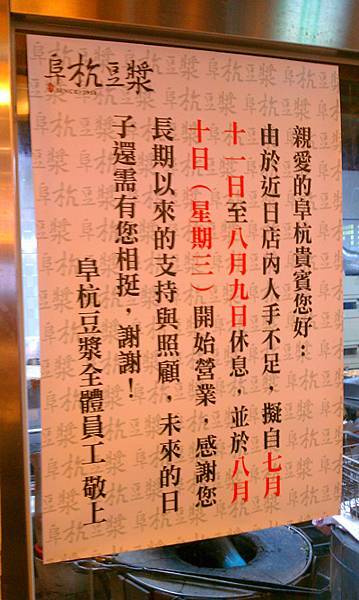 阜杭豆漿
SINCE 1958
親愛的阜杭貴賓您好：
由於近日店內人手不足，擬自七月
十一日至八月九日休息，並於八月
十日（星期三）開始營業，感謝您
長期以來的支持與照顧，未來的日
子還需有您相挺，謝謝！
阜杭豆漿全體員工 敬上